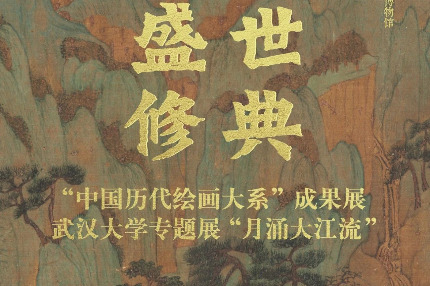 盛世
修典
博物馆
“中国历代绘画大系”成果展
武汉大学专题展“月涌大江流”